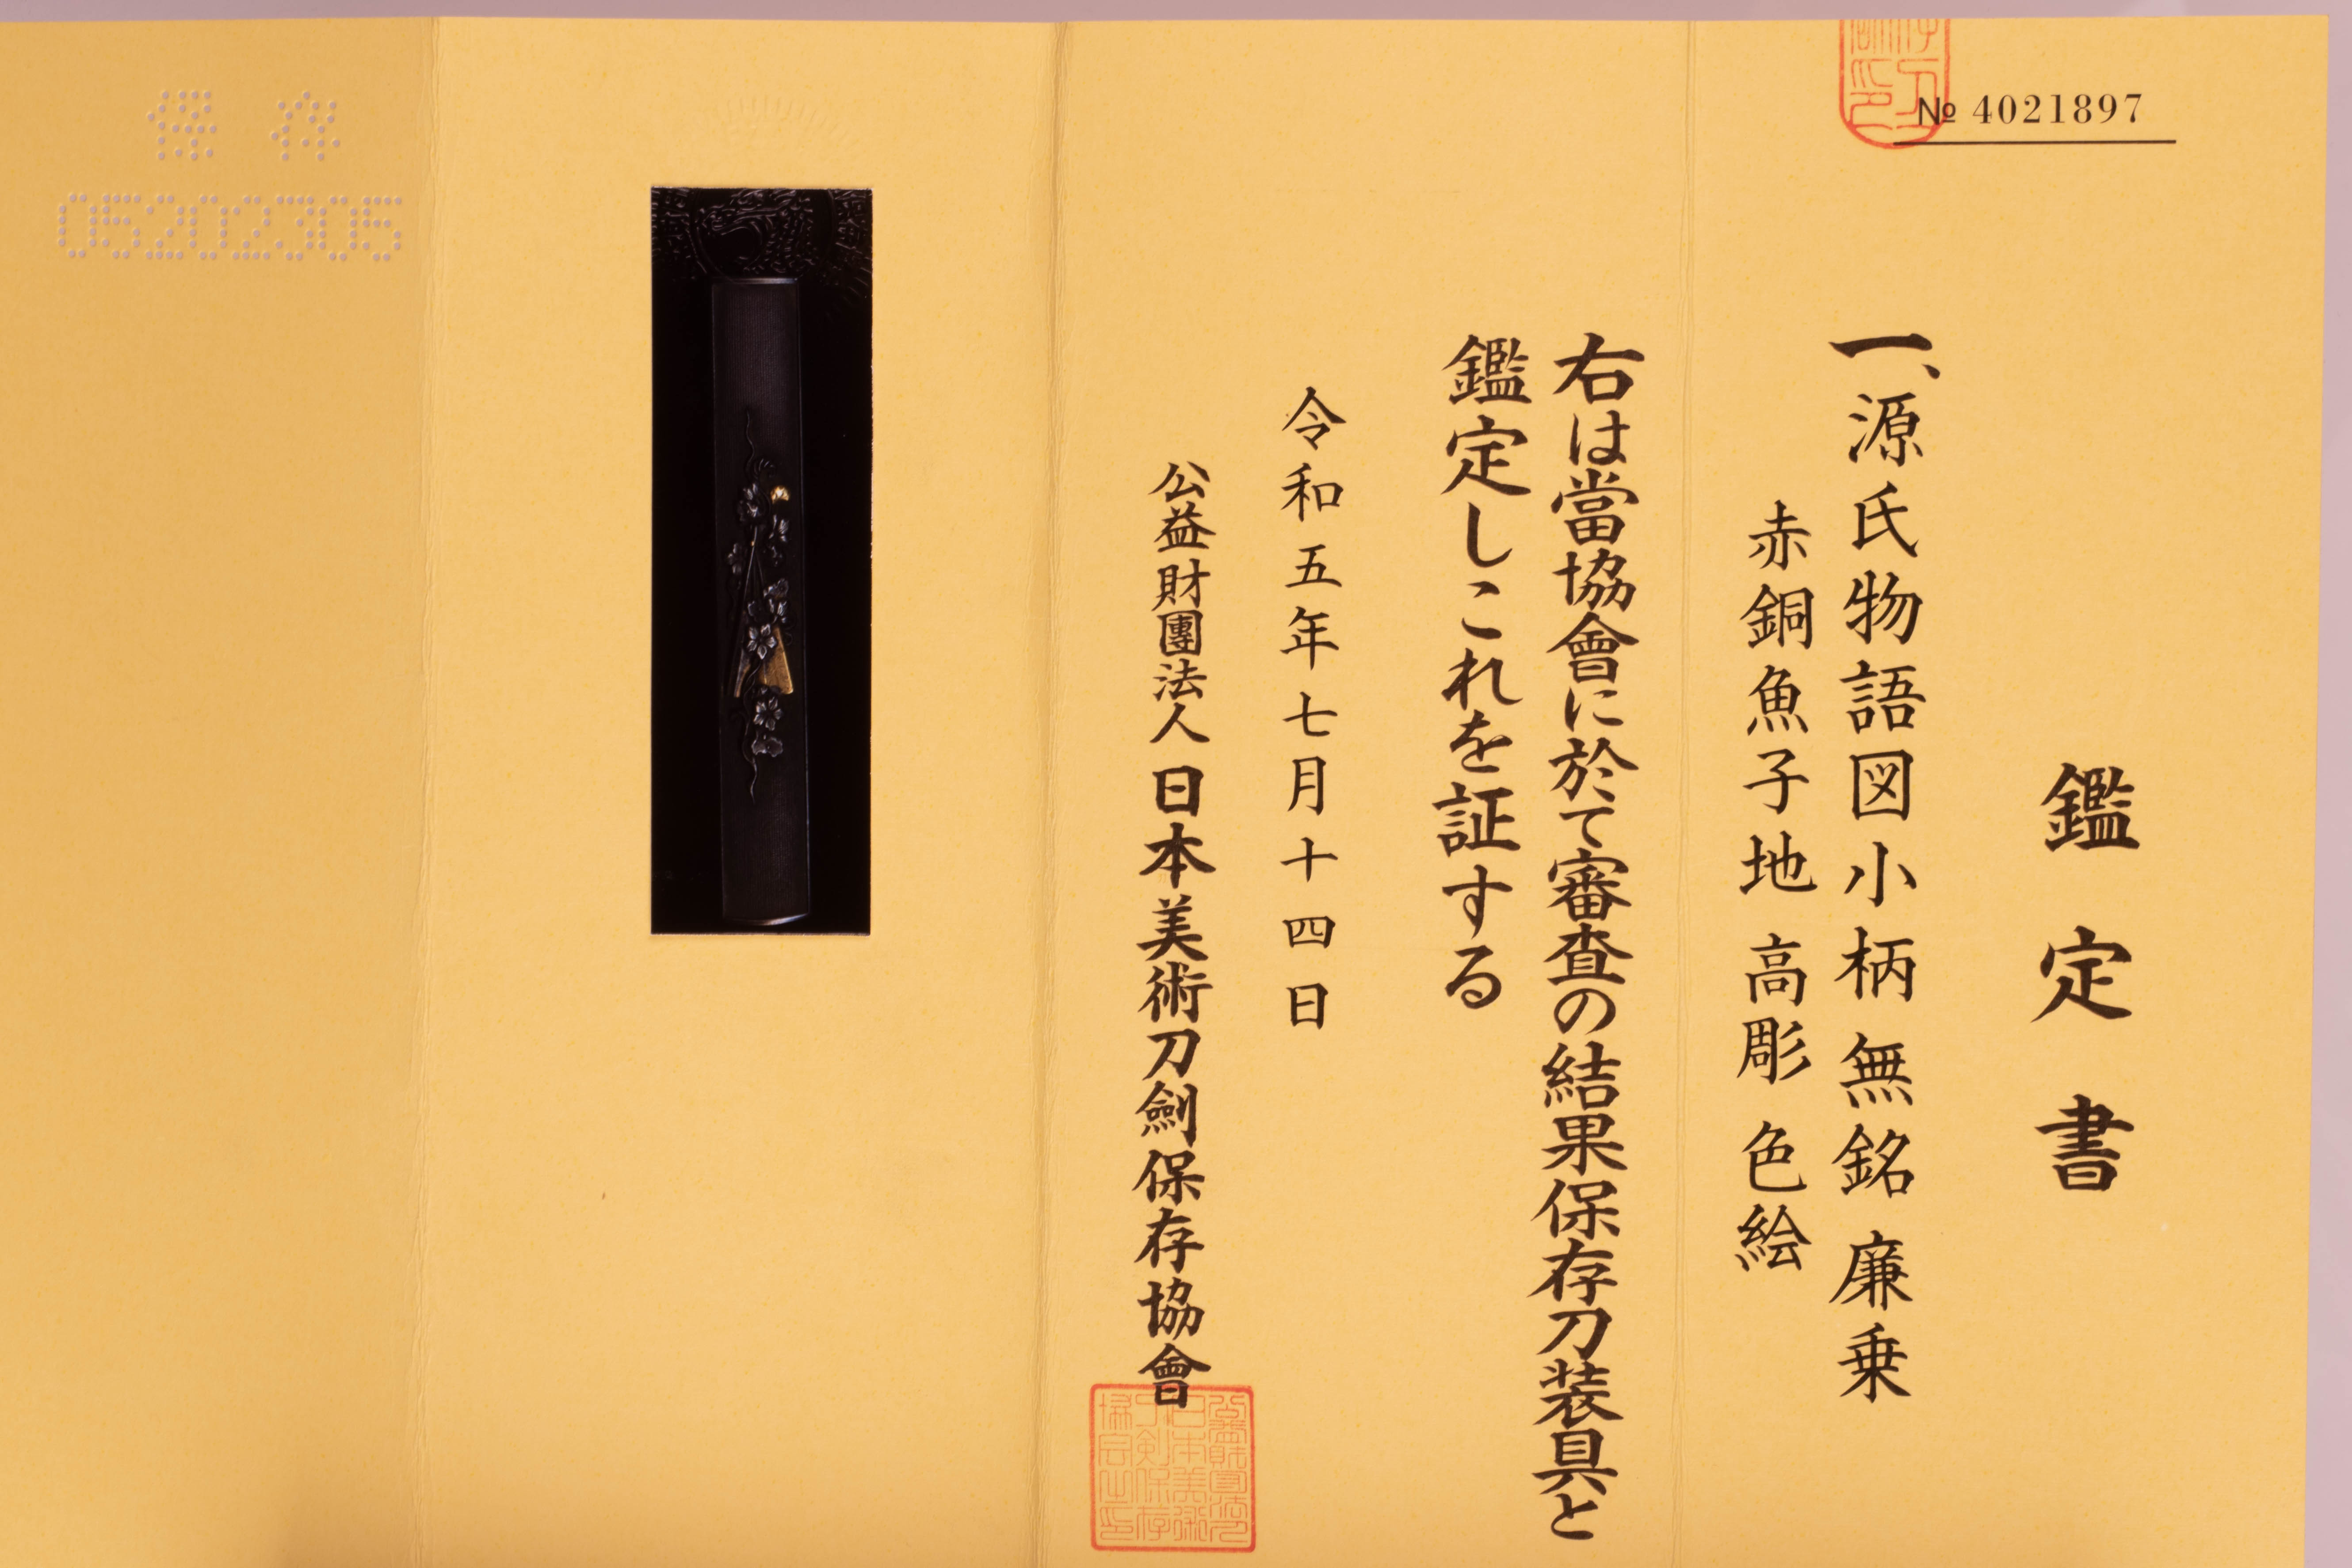 № 4021897
鑑定書
一、源氏物語図小柄 無銘 廉乗
赤銅魚子地 高彫 色絵
右は當協會に於て審査の結果保存刀装具と
鑑定しこれを証する
令和五年七月十四日
公益財團法人 日本美術刀劍保存協會
保存
05202305